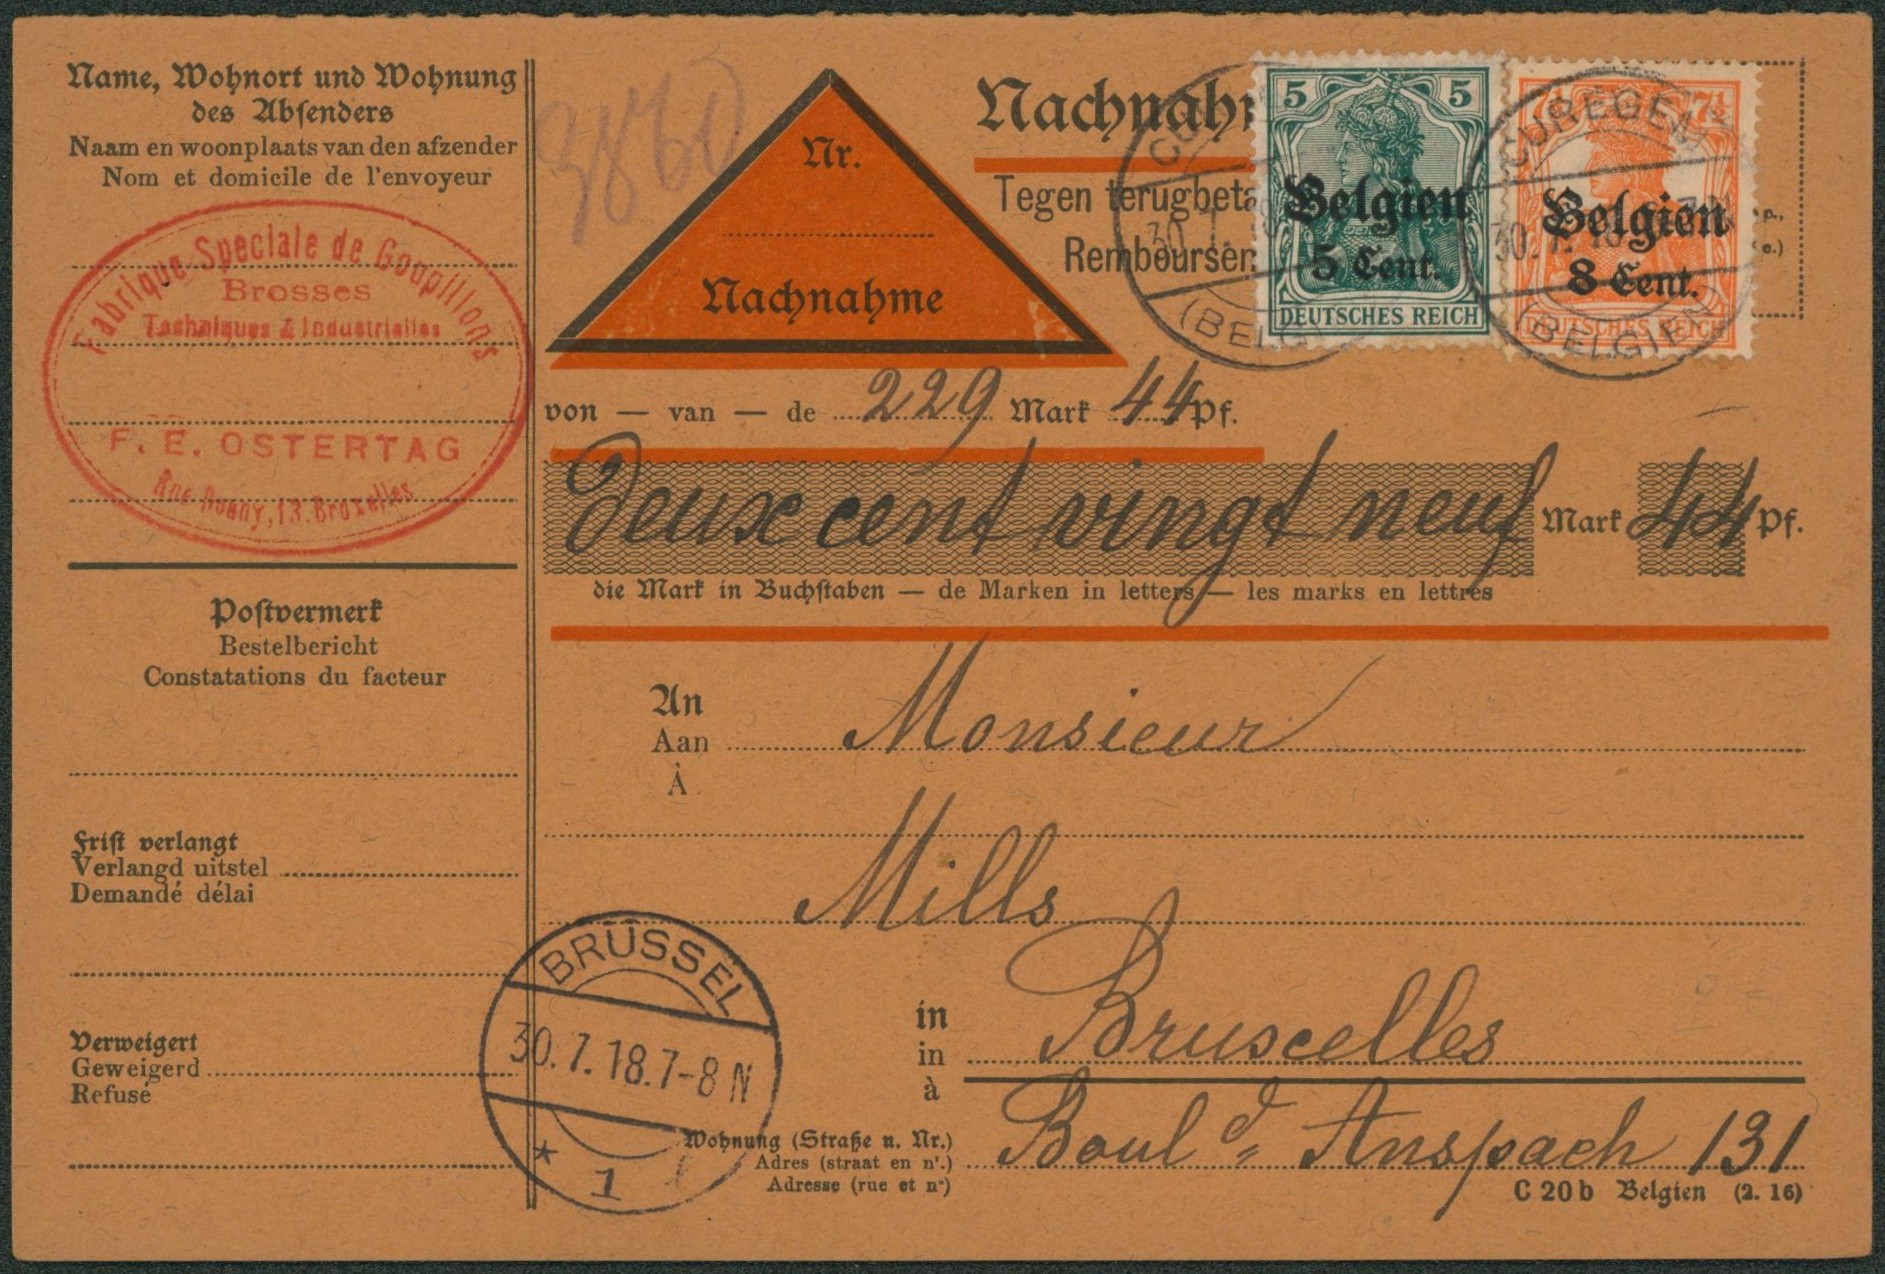 Name, Wohnort und Wohnung
des Absenders
Naam en woonplaats van den afzender
Nom et domicile de l'envoyeur
Fabrique Spéciale de Goupillons
Brosses
Techniques & Industrielles
F. E. OSTERTAG
Rue 13. Bruxelles
Postvermerk
Bestelbericht
Constatations du facteur
Frist verlangt
Verlangd uitstel
Demandé délai
Verweigert
Geweigerd
Refusé
3860
Nr.
Nachnahme
Nachnah
Tegen terugbeta
Rembourse
5 5
Belgien
5 Cent.
DEUTSCHES REICH
7½ 7½
Belgien
8 Cent.
DEUTSCHES REICH
CU
30.7.18
(BELG
CUREGEM
30.7.18
(BELGIEN)
von — van — de 229 Mark 44 Pf.
Deux cent vingt neuf Mark 44 Pf.
die Mark in Buchstaben — de Marken in letters — les marks en lettres
An
Aan Monsieur
À
Mills
in
in Bruxelles
à
Wohnung (Straße u. Nr.)
Adres (straat en nr.) Boul d Anspach 131
Adresse (rue et no)
C 20 b Belgien (2. 16)
BRÜSSEL
30.7.18.7-8 N
* 1